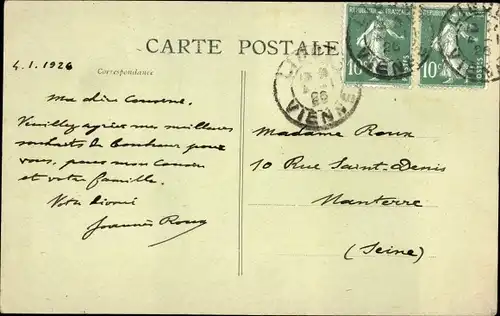 CARTE POSTALE
4.1.1926
Correspondance
Ma chère Cousine.
Veuillez agréer mes meilleurs
souhaits de bonheur pour
vous, pour mon Cousin
et votre famille.
Votre dévoué
Joannès Roux
Madame Roux
10 Rue Saint-Denis
Nanterre
(Seine)
10c
10c
VIENNE
VIENNE
VIENNE